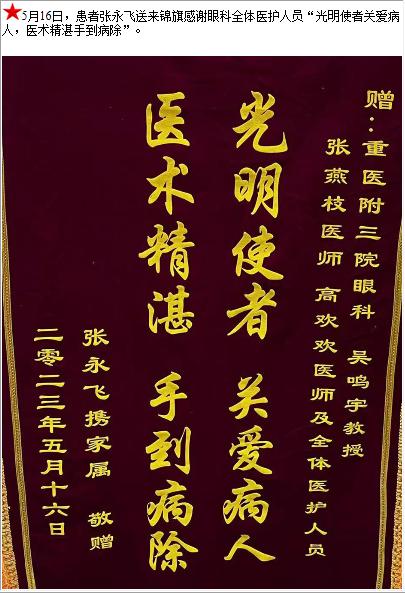 5月16日，患者张永飞送来锦旗感谢眼科全体医护人员“光明使者关爱病
人，医术精湛手到病除”。
赠：重医附三院眼科 吴鸣宇教授
张燕枝医师 高欢欢医师及全体医护人员
光明使者 关爱病人
医术精湛 手到病除
张永飞携家属 敬赠
二零二三年五月十六日